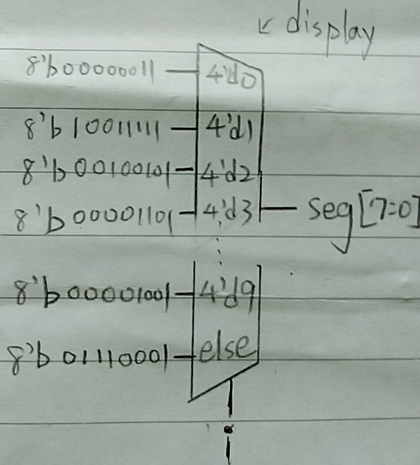 display
8'b00000011 4'd0
8'b10011111 4'd1
8'b00100101 4'd2
8'b00001101 4'd3 seg[7:0]
8'b00001001 4'd9
8'b01110001 else